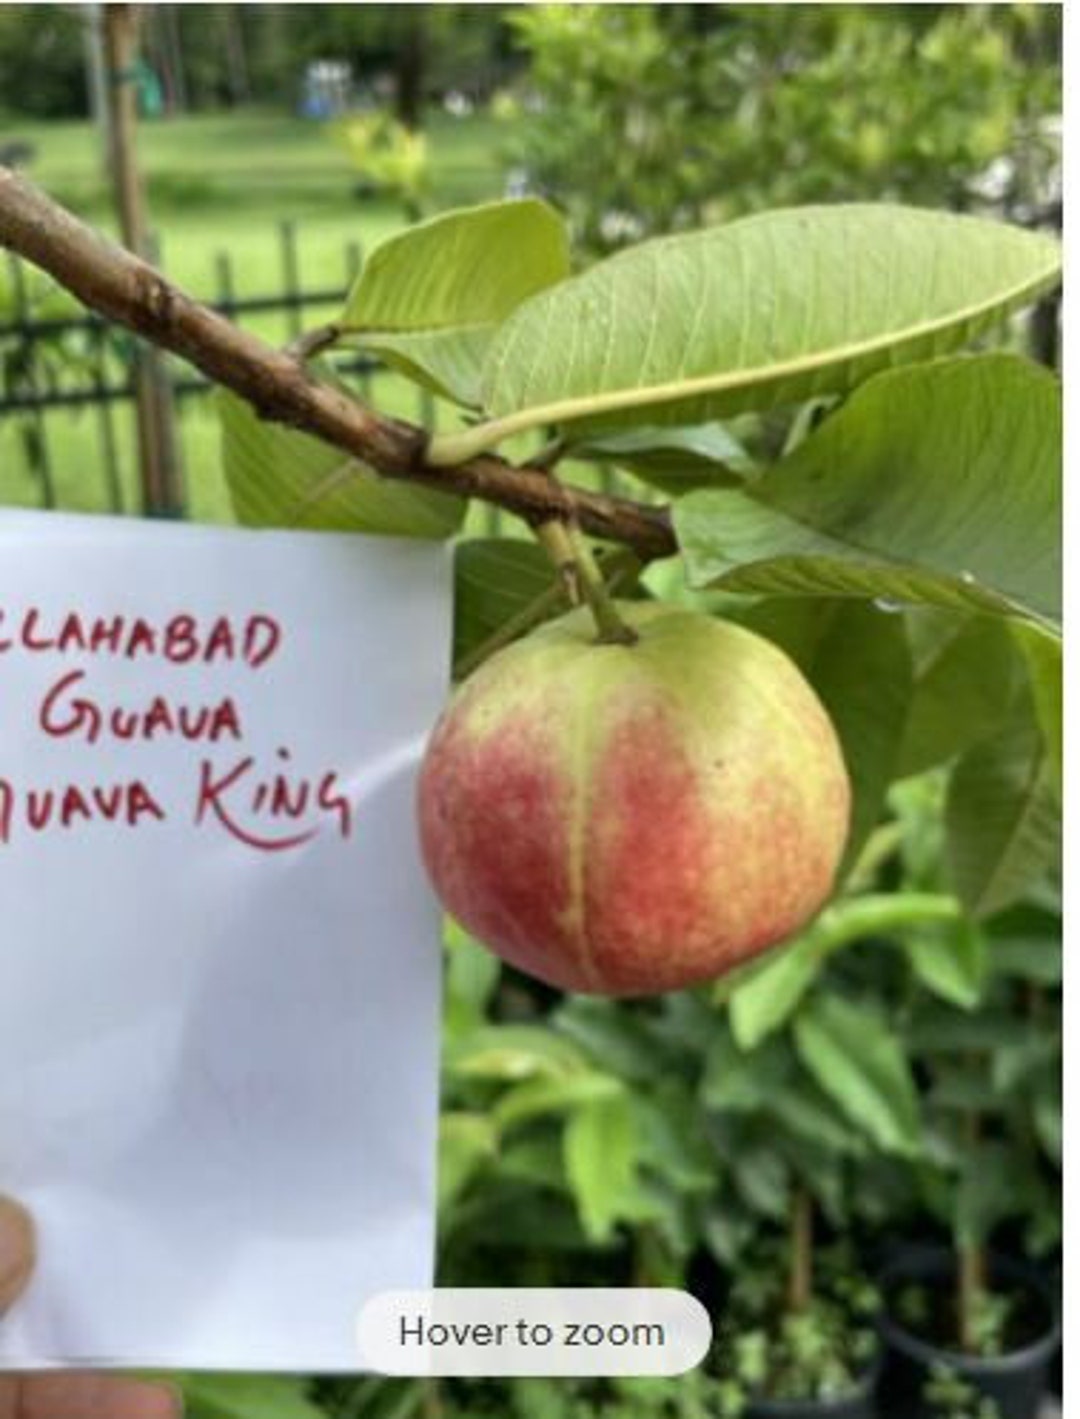 LLAHABAD
GUAVA
UAVA KiNG
Hover to zoom